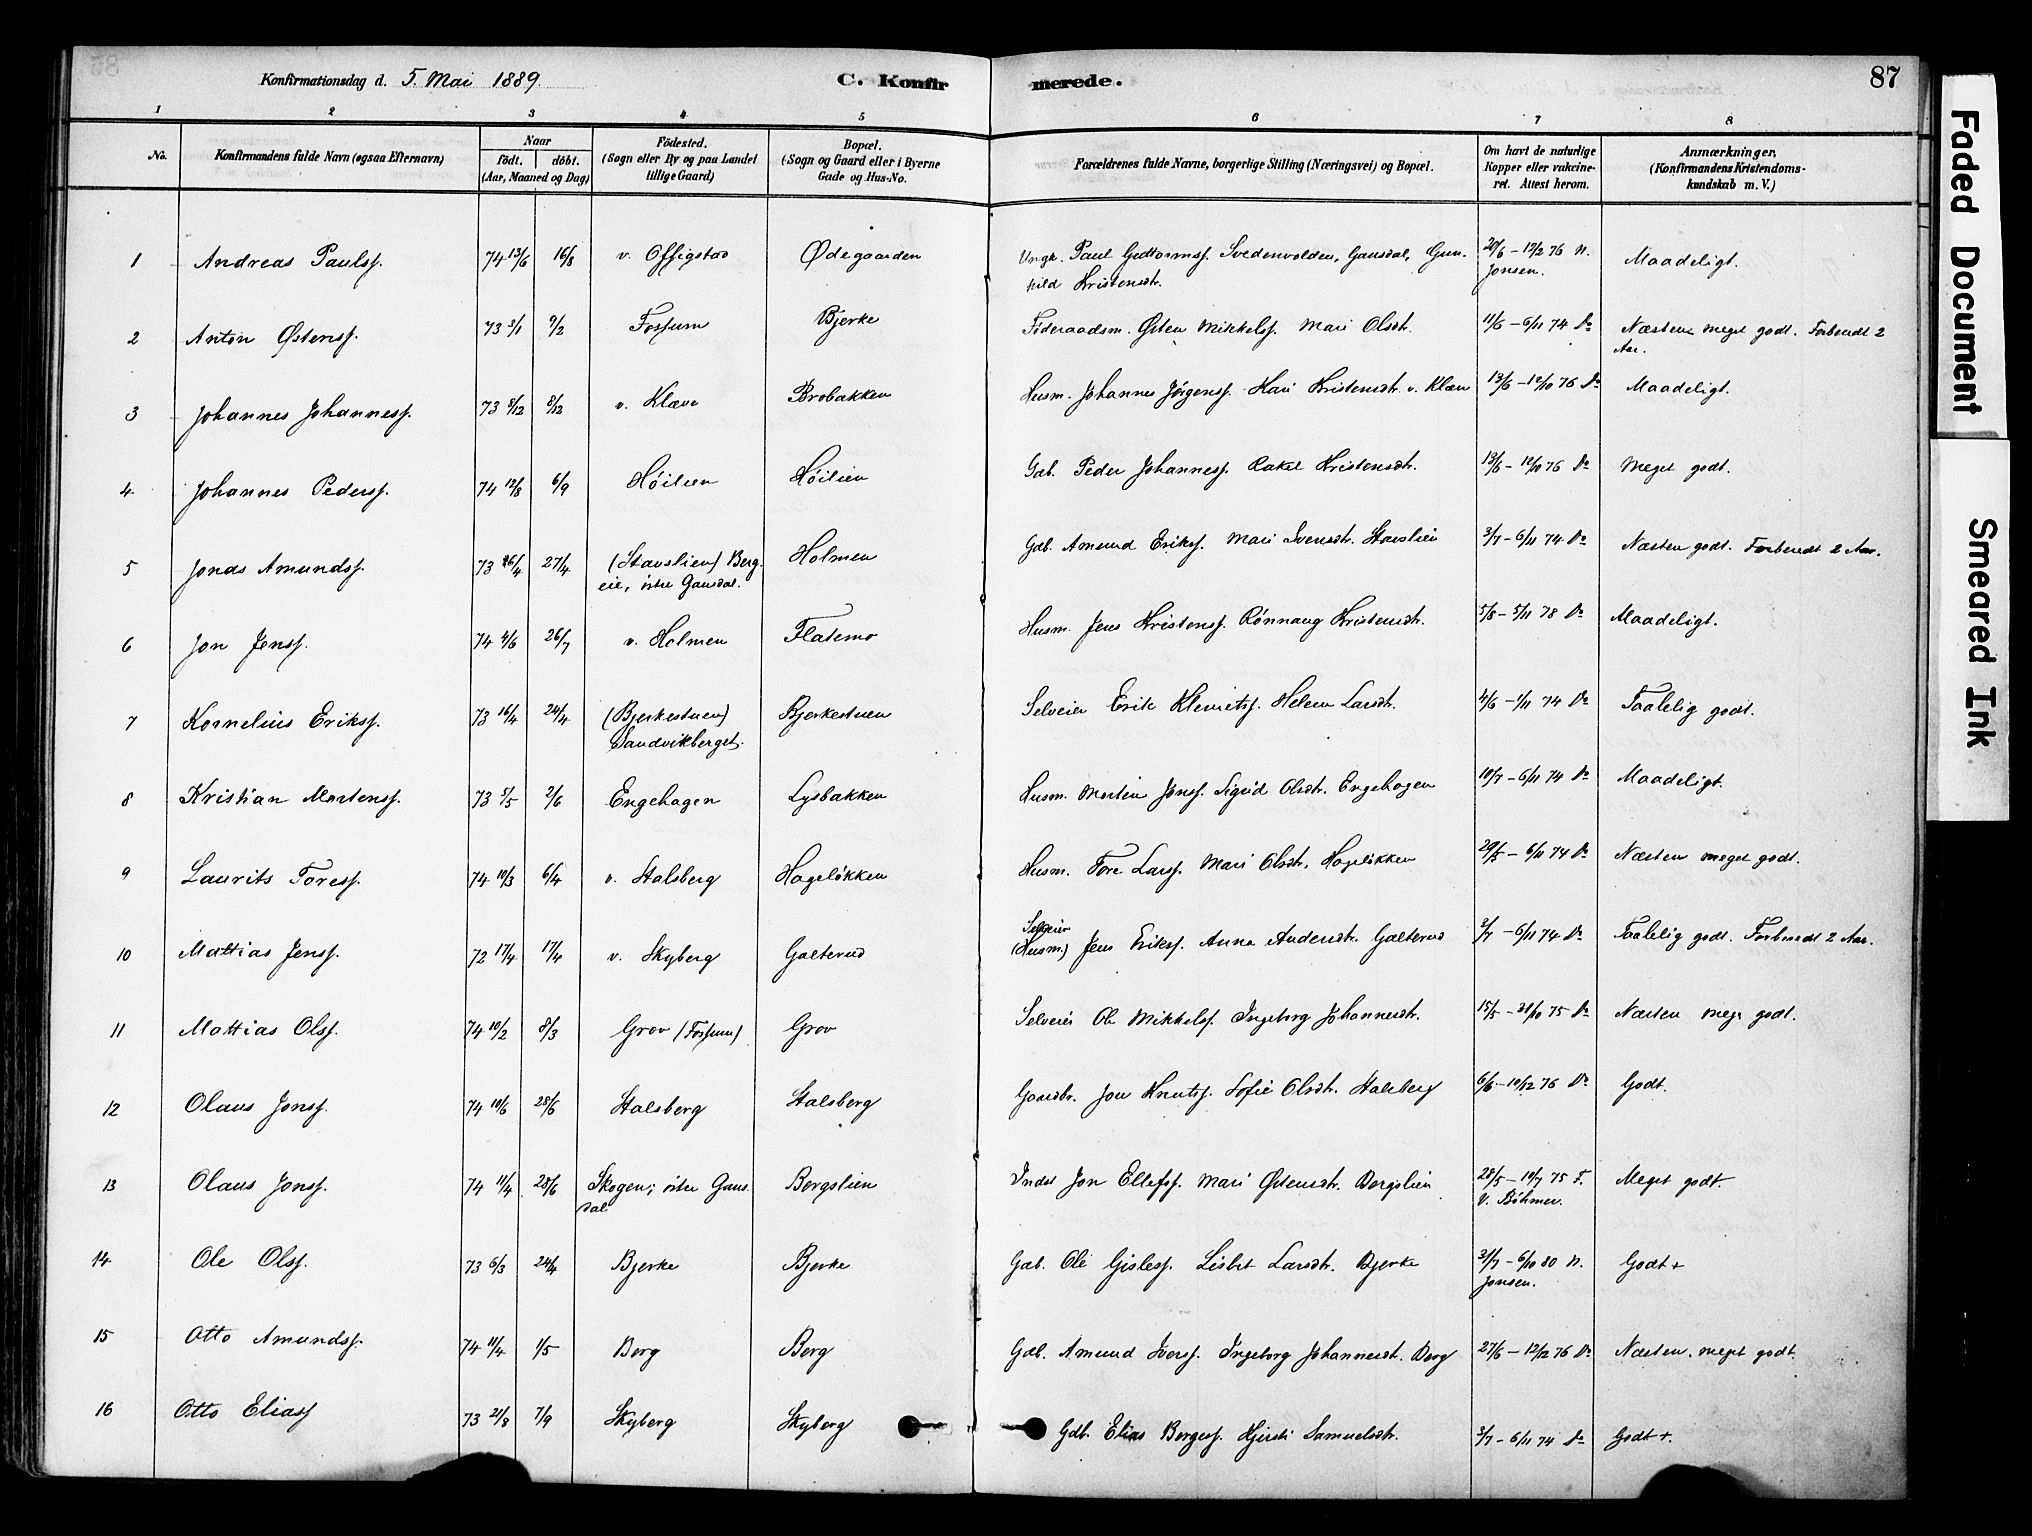 Konfirmationsdag d. 5. Mai 1889.
C. Konfirmerede.
87
1 2 3 4 5 6 7 8
No.
Konfirmandens fulde Navn (ogsaa Efternavn)
Naar
födt. döbt.
(Aar, Maaned og Dag)
Födested.
(Sogn eller By og paa Landet
tillige Gaard)
Bopæl.
(Sogn og Gaard eller i Byerne
Gade og Hus-No.
Forældrenes fulde Navne, borgerlige Stilling (Næringsvei) og Bopæl.
Om havt de naturlige
Kopper eller vakcine-
ret. Attest herom.
Anmærkninger,
(Konfirmandens Kristendoms-
kundskab m. V.)
1 Andreas Paulsf. 74 13/6 16/8 v. Offigstad Ødegaarden Ungk. Paul Guttormsf. Svedenvolden, Gausdal, Gun-
hild Kristensdr. 20/6 – 12/2 76 N.
Jonsen. Maadeligt.
2 Anton Østensf. 73 3/1 9/2 Fossum Bjerke Föderaadsm. Østen Mikkelsf. Mari Olsdr. 11/6 – 6/11 74 Do Næsten meget godt. Forberedt 2
Aar.
3 Johannes Johannesf. 73 8/12 8/12 v. Klæve Brobakken Husm. Johannes Jörgensf. Kari Kristensdr. v. Klæve 13/6 – 12/10 76 Do Maadeligt.
4 Johannes Pedersf. 74 12/8 6/9 Höilien Höilien Gdb. Peder Johannesf. Rakel Kristensdr. 13/6 – 12/10 76 Do Meget godt.
5 Jonas Amundsf. 73 16/4 27/4 (Stavslien) Berg-
eie, östre Gausdal. Holmen Gdb. Amund Eriksf. Mari Svensdr. Stavslien 3/7 – 6/11 74 Do Næsten godt. Forberedt 2 Aar.
6 Jon Jensf. 74 4/6 26/7 v. Holmen Flatemo Husm. Jens Kristensf. Rönnaug Kristensdr. 5/8 – 5/11 78 Do Maadeligt.
7 Kornelius Eriksf. 73 16/4 24/4 (Bjerkestuen)
Sandvikberget. Bjerkestuen Selveier Erik Klemetsf. Helene Larsdr. 4/6 – 1/11 74 Do Taalelig godt.
8 Kristian Martensf. 73 5/5 2/6 Engehagen Lysbakken Husm. Morten Jonsf. Sigrid Olsdr. Engehagen 10/7 – 6/11 74 Do Maadeligt.
9 Laurits Toresf. 74 10/3 6/4 v. Stalsberg Hagelökken Husm. Tore Larsf. Mari Olsdr. Hagelökken 29/5 – 6/11 74 Do Næsten meget godt.
10 Mattias Jensf. 72 17/4 17/4 v. Skyberg Galterud Selveier
(Husm.) Jens Eriksf. Anne Andersdr. Galterud 3/7 – 6/11 74 Do Taalelig godt. Forberedt 2 Aar.
11 Mattias Olsf. 74 10/2 8/3 Grov (Fossum) Grov Selveier Ole Mikkelsf. Ingeborg Johannesdr. 15/5 – 31/10 75 Do Næsten meget godt.
12 Olaus Jonsf. 74 10/6 28/6 Stalsberg Stalsberg Gaardbr. Jon Knutsf. Sofie Olsdr. Stalsberg 6/6 – 10/12 76 Do Godt.
13 Olaus Jonsf. 74 11/4 28/6 Skogen, östre Gaus-
dal Bergslien Inds. Jon Ellefsf. Mari Østensdr. Bergslien 28/5 – 10/7 75 F.
V. Böhmer. Meget godt
14 Ole Olsf. 73 6/3 24/4 Bjerke Bjerke Gdb. Ole Gislesf. Lisbet Larsdr. Bjerke 31/7 – 6/10 80 N.
Jonsen. Godt +
15 Otto Amundsf. 74 11/4 1/5 Berg Berg Gdb. Amund Iversf. Ingeborg Johannesdr. Berg 27/6 – 12/12 76 Do Næsten meget godt.
16 Otto Eliasf 73 21/8 7/9 Skyberg Skyberg Gdb. Elias Borgesf. Kjersti Samuelsdr. 3/7 – 6/11 74 Do Godt +.
Faded Document
Smeared Ink